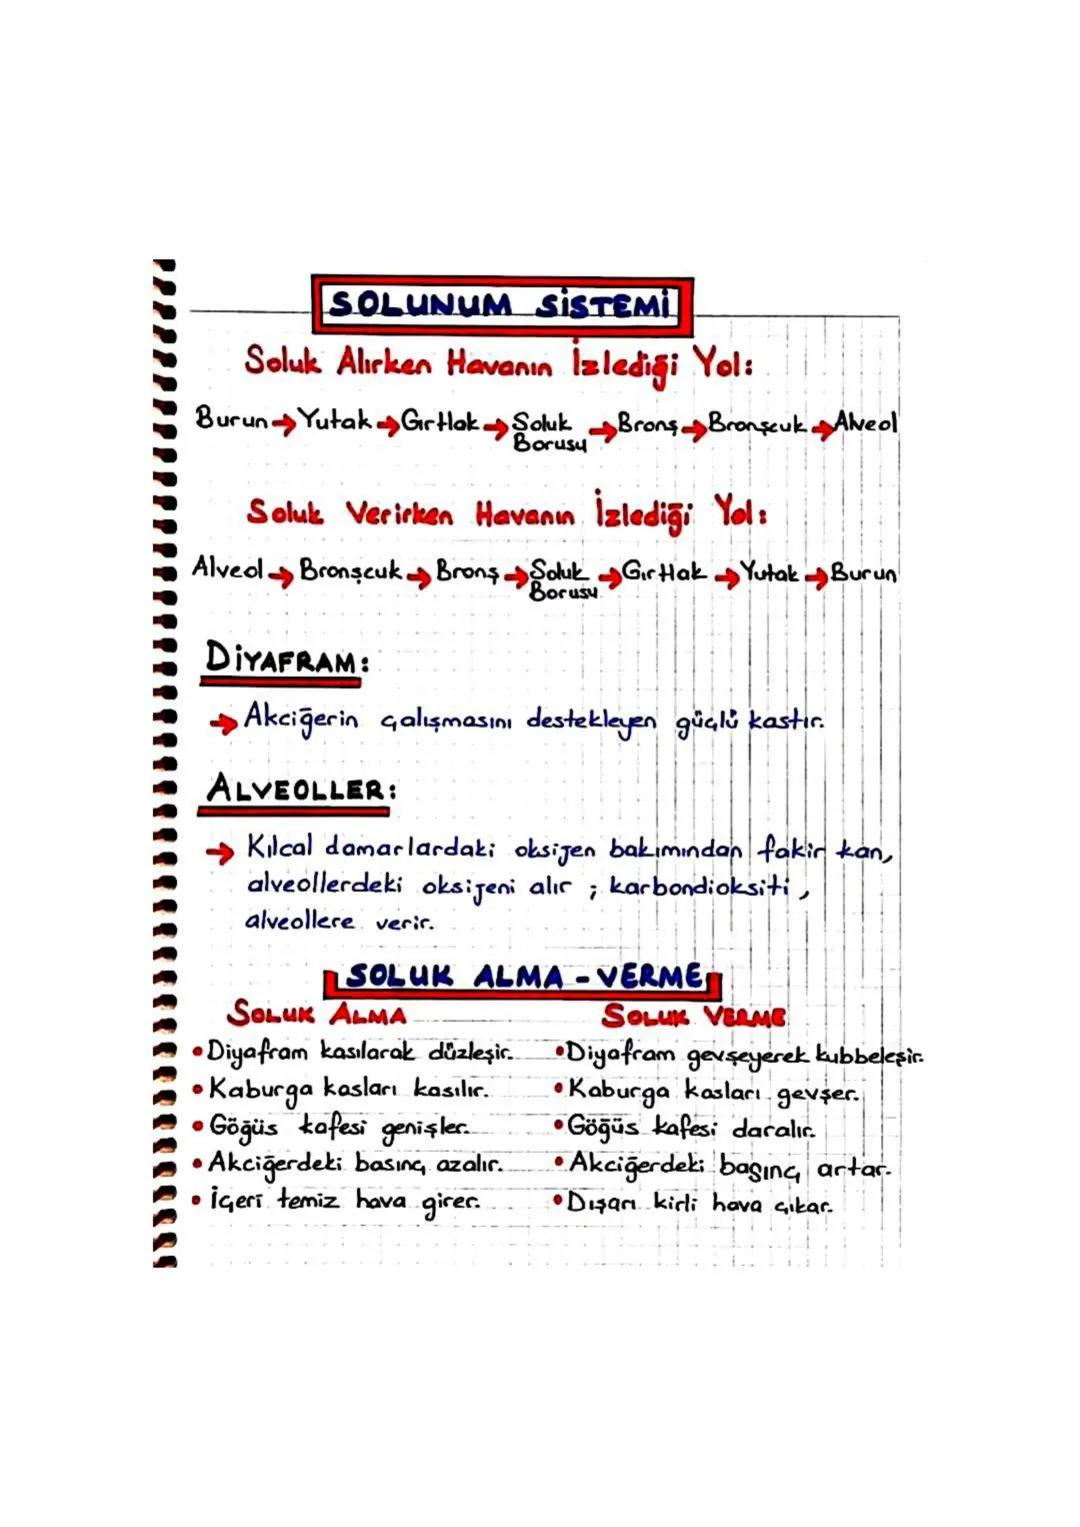 SOLUNUM SİSTEMİ
Soluk Alırken Havanın İzlediği Yol:
Burun → Yutak → Gırtlak → Soluk Borusu → Bronş → Bronşcuk → Alveol
Soluk Verirken Havanın İzlediği Yol:
Alveol → Bronşcuk → Bronş → Soluk Borusu → Gırtlak → Yutak → Burun
DİYAFRAM:
→ Akciğerin çalışmasını destekleyen güçlü kastır.
ALVEOLLER:
→ Kılcal damarlardaki oksijen bakımından fakir kan,
alveollerdeki oksijeni alır ; karbondioksiti,
alveollere verir.
SOLUK ALMA - VERME
SOLUK ALMA
• Diyafram kasılarak düzleşir.
• Kaburga kasları kasılır.
• Göğüs kafesi genişler.
• Akciğerdeki basınç azalır.
• İçeri temiz hava girer.
SOLUK VERME
• Diyafram gevşeyerek kubbeleşir.
• Kaburga kasları gevşer.
• Göğüs kafesi daralır.
• Akciğerdeki başınç artar.
• Dışarı kirli hava çıkar.